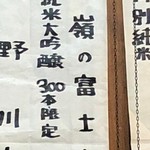 別純米
嶺の富士
純米大吟醸 300本限定
野川